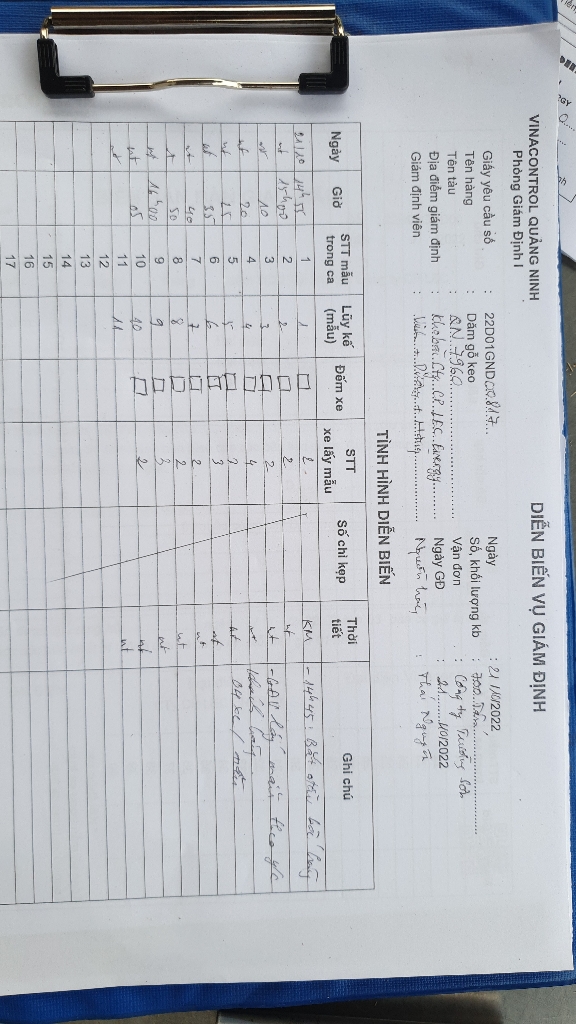 VINACONTROL QUẢNG NINH
Phòng Giám Định I
DIỄN BIẾN VỤ GIÁM ĐỊNH
Giấy yêu cầu số : 22D01GND 00817 Ngày : 21/10/2022
Tên hàng : Dăm gỗ keo Số, khối lượng kb :
Tên tàu : QN 7960 Vận đơn : Công ty Trường Sơn
Địa điểm giám định : Energy Ngày GĐ : 21/10/2022
Giám định viên : : Thái Nguyên
TÌNH HÌNH DIỄN BIẾN
Ngày Giờ STT mẫu trong ca Lũy kế (mẫu) Đếm xe STT xe lấy mẫu Số chì kẹp Thời tiết Ghi chú
21/10 14h55 1 1 2 KM - 14h45: Bắt đầu
nt 15h00 2 2 2 nt
nt 10 3 3 2 nt - GĐV lấy mẫu theo y/c
nt 20 4 4 4 nt khách hàng
nt 25 5 5 nt 04 xe/ mẫu
nt 35 6 6 3 nt
nt 40 7 7 2 nt
50 8 8 2 nt
nt 16h00 9 9 3 nt
nt 05 10 10 2 nt
nt 11 11 nt
12
13
14
15
16
17